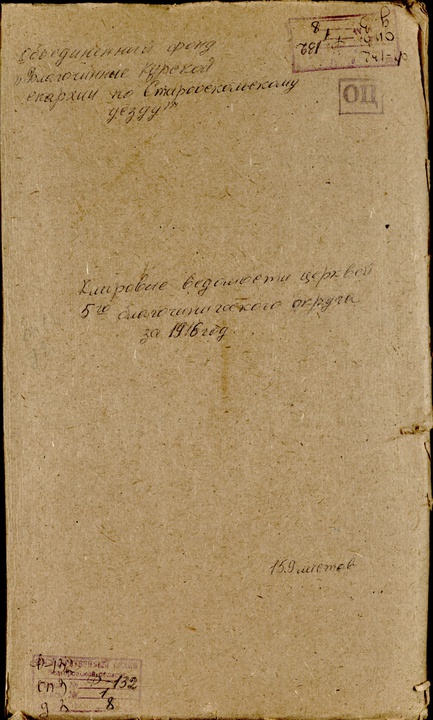 Объединенный фонд
„Благочинные Курской
епархии по Старооскольскому
уезду"
ОЦ
Клировые ведомости церквей
5го благочиннического округа
за 1916 год.
159 листов
132
1
8